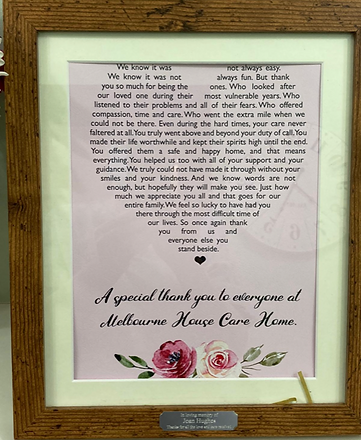 We know it was not always easy.
We know it was not always fun. But thank
you so much for being the ones. Who looked after
our loved one during their most vulnerable years. Who
listened to their problems and all of their fears. Who offered
compassion, time and care. Who went the extra mile when we
could not be there. Even during the hard times, your care never
faltered at all. You truly went above and beyond your duty of call. You
made their life worthwhile and kept their spirits high until the end.
You offered them a safe and happy home, and that means
everything. You helped us too with all of your support and your
guidance. We truly could not have made it through without your
smiles and your kindness. And we know words are not
enough, but hopefully they will make you see. Just how
much we appreciate you all and that goes for our
entire family. We feel so lucky to have had you
there through the most difficult time of
our lives. So once again thank
you from us and
everyone else you
stand beside.
A special thank you to everyone at
Melbourne House Care Home.
In loving memory of
Joan Hughes
Thanks for all the love and care